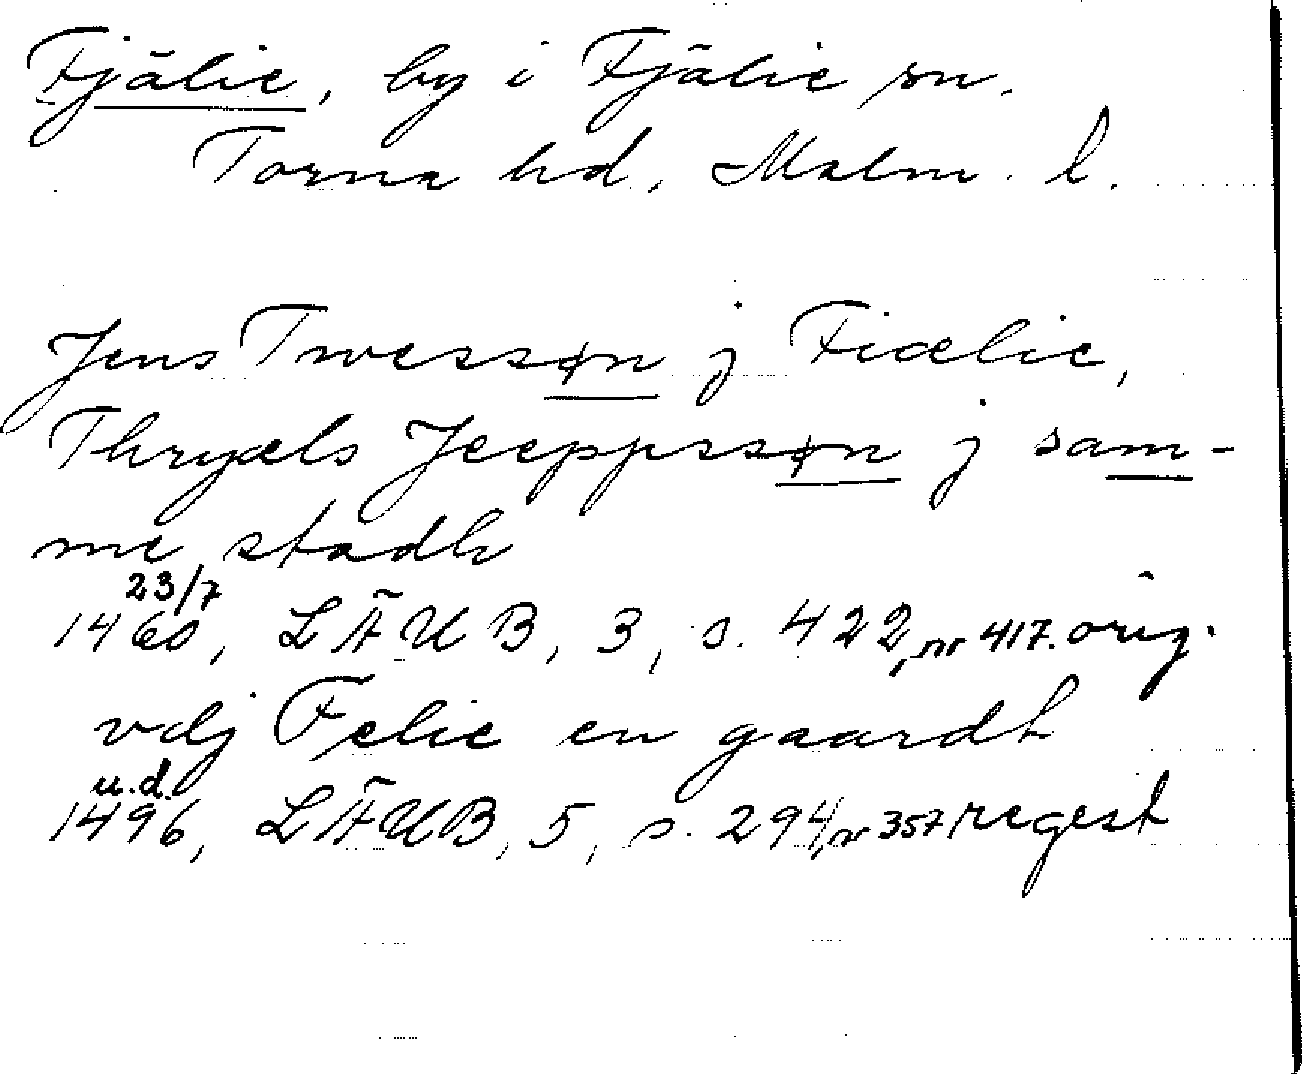 Fjälie, by i Fjälie sn.
Torna hd, Malm. l.
Jens Twessøn j Fiælie,
Thryæls Jeeppssøn j sam-
me stadh
23/7
1460, LÄUB, 3, s. 422, nr 417. orig.
vdj Felie en gaardt
u.d.
1496, LÄUB, 5, s. 294, nr 357, regest